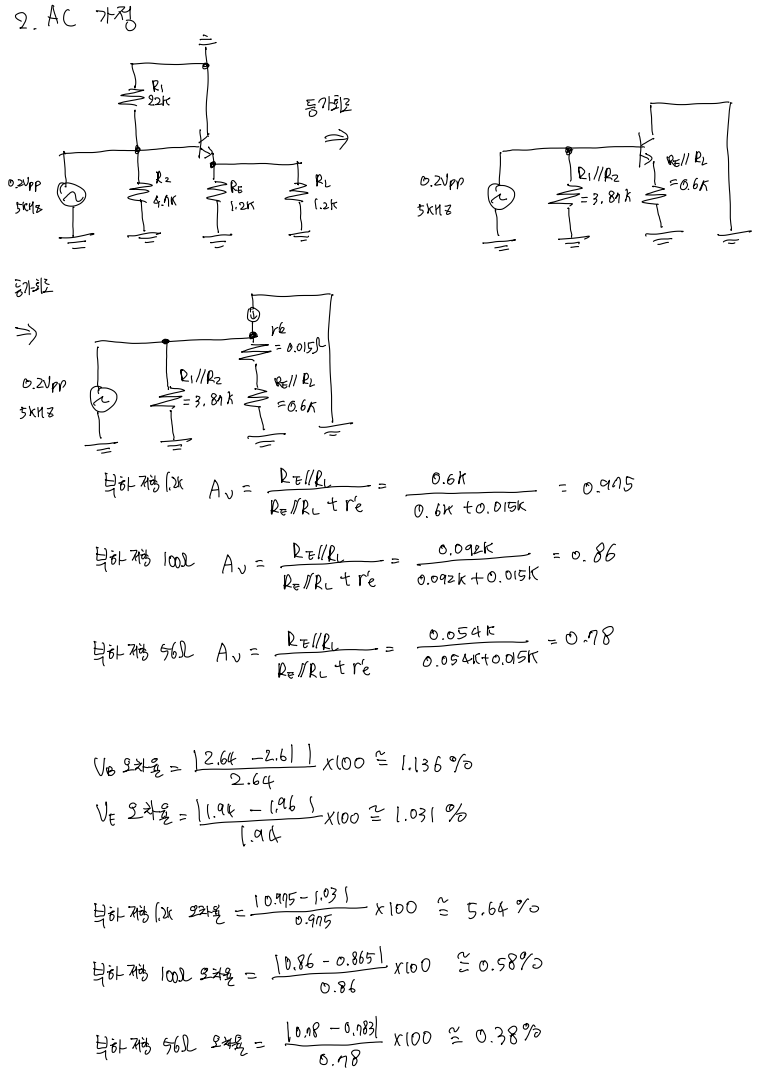 2. AC 가정
R1
22K
등가회로
⇒
0.2Vpp
5KHz
R2
4.7K
RE
1.2K
RL
1.2K
0.2Vpp
5KHz
R1//R2
=3.87K
RE//RL
=0.6K
등가회로
⇒
0.2Vpp
5KHz
R1//R2
=3.87K
r'e
=0.015Ω
RE//RL
=0.6K
부하 저항 1.2k Av = RE//RL / RE//RL + r'e = 0.6K / 0.6K + 0.015K = 0.975
부하 저항 100Ω Av = RE//RL / RE//RL + r'e = 0.092K / 0.092K + 0.015K = 0.86
부하 저항 56Ω Av = RE//RL / RE//RL + r'e = 0.054K / 0.054K+0.015K = 0.78
VB 오차율 = |2.64 - 2.61| / 2.64 ×100 ≅ 1.136 %
VE 오차율 = |1.94 - 1.96| / 1.94 ×100 ≅ 1.031 %
부하 저항 1.2k 오차율 = |0.975 - 1.03| / 0.975 ×100 ≅ 5.64 %
부하 저항 100Ω 오차율 = |0.86 - 0.865| / 0.86 ×100 ≅ 0.58%
부하 저항 56Ω 오차율 = |0.78 - 0.783| / 0.78 ×100 ≅ 0.38%